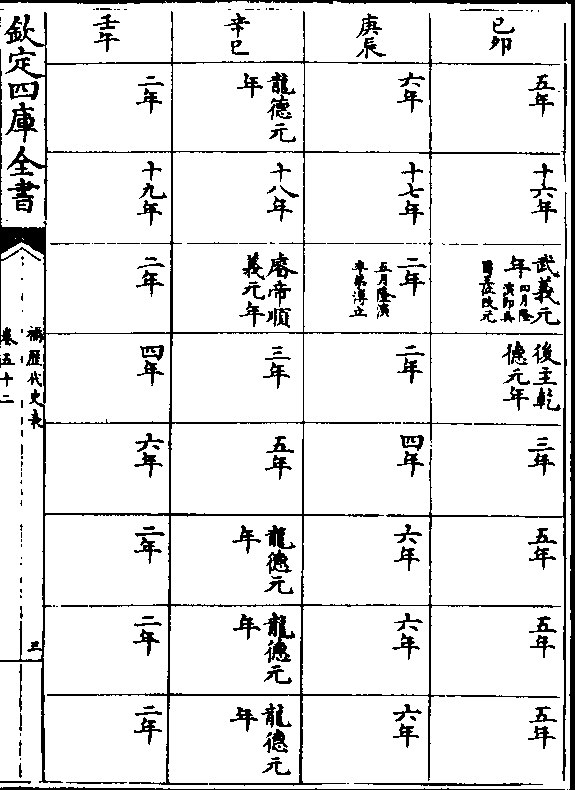 己卯
五年
十六年
武義元
年
四月隆
演即吳
改元
後主乾
德元年
三年
五年
五年
五年
庚辰
六年
十七年
二年
五月隆演
卒弟溥立
二年
四年
六年
六年
六年
辛巳
龍德元
年
十八年
睿帝順
義元年
三年
五年
龍德元
年
龍德元
年
龍德元
年
壬午
二年
十九年
二年
四年
六年
二年
二年
二年
欽定四庫全書
補歷代史表
卷五十二
三